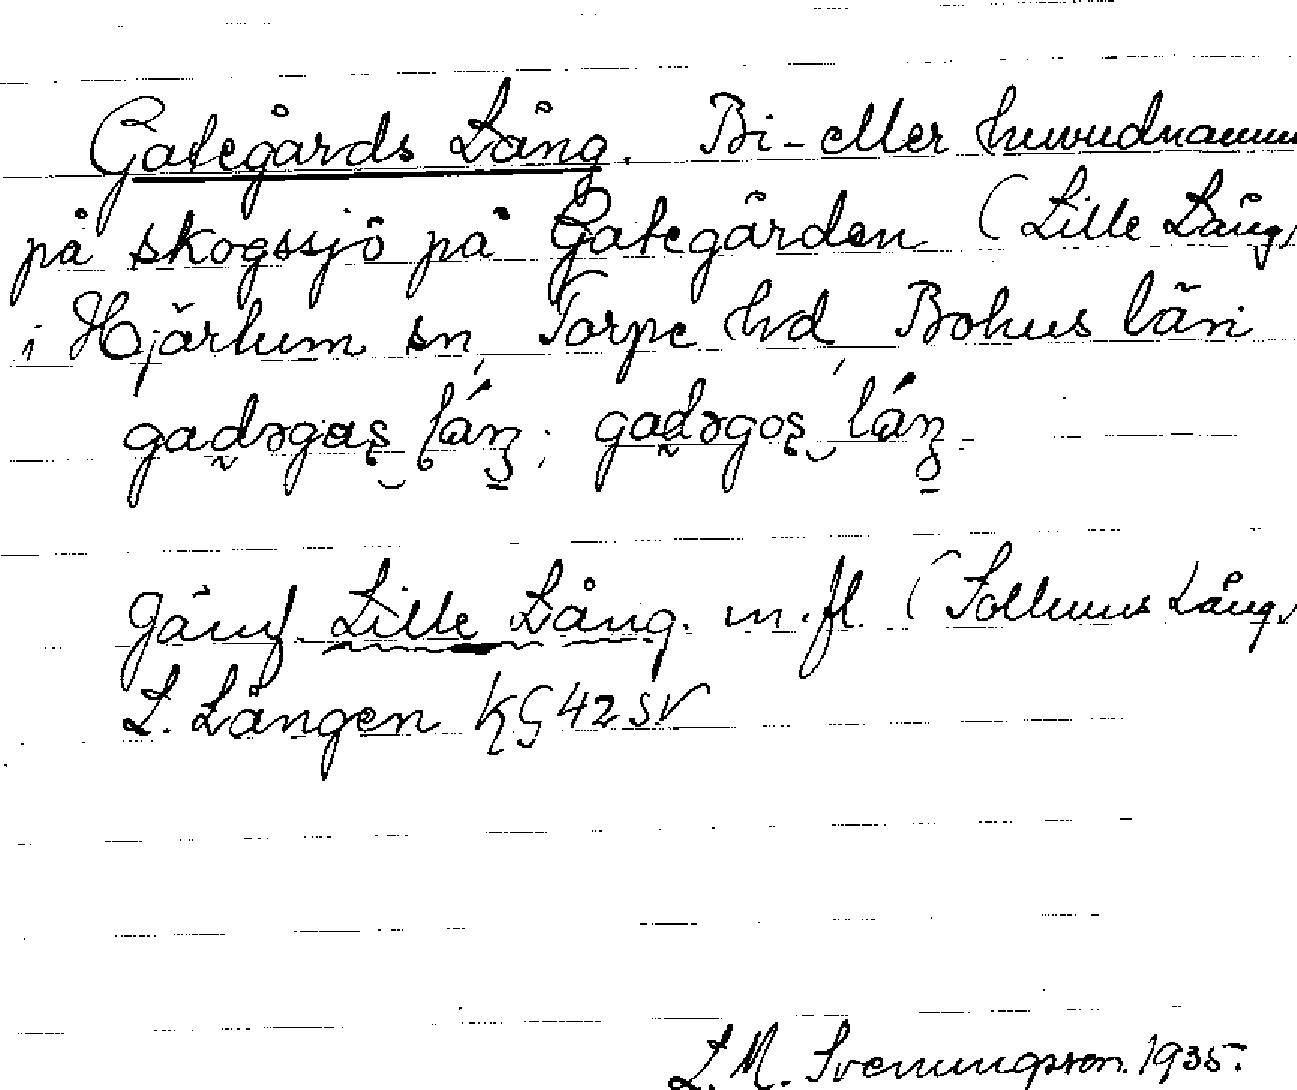 Gategårds Lång. Bi- eller huvudnamn
på skogssjö på Gategården (Lille Lång,
i Hjärtum sn, Torpe hd, Bohus län
Jämf. Lille Lång. m.fl. (Sollums Lång,
L. Lången KG 42 SV
L. M. Svenungsson. 1935.